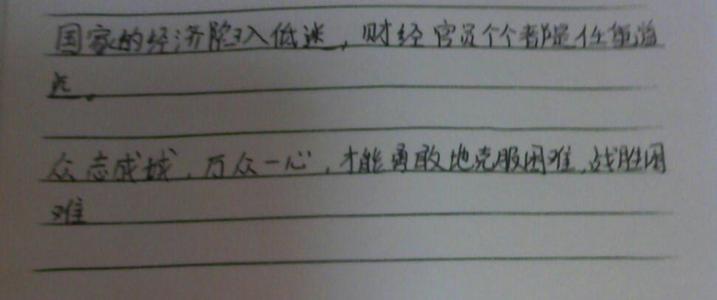 国家的经济陷入低迷，财经官员个个都是任重道
远。
众志成城，万众一心，才能勇敢地克服困难，战胜困
难